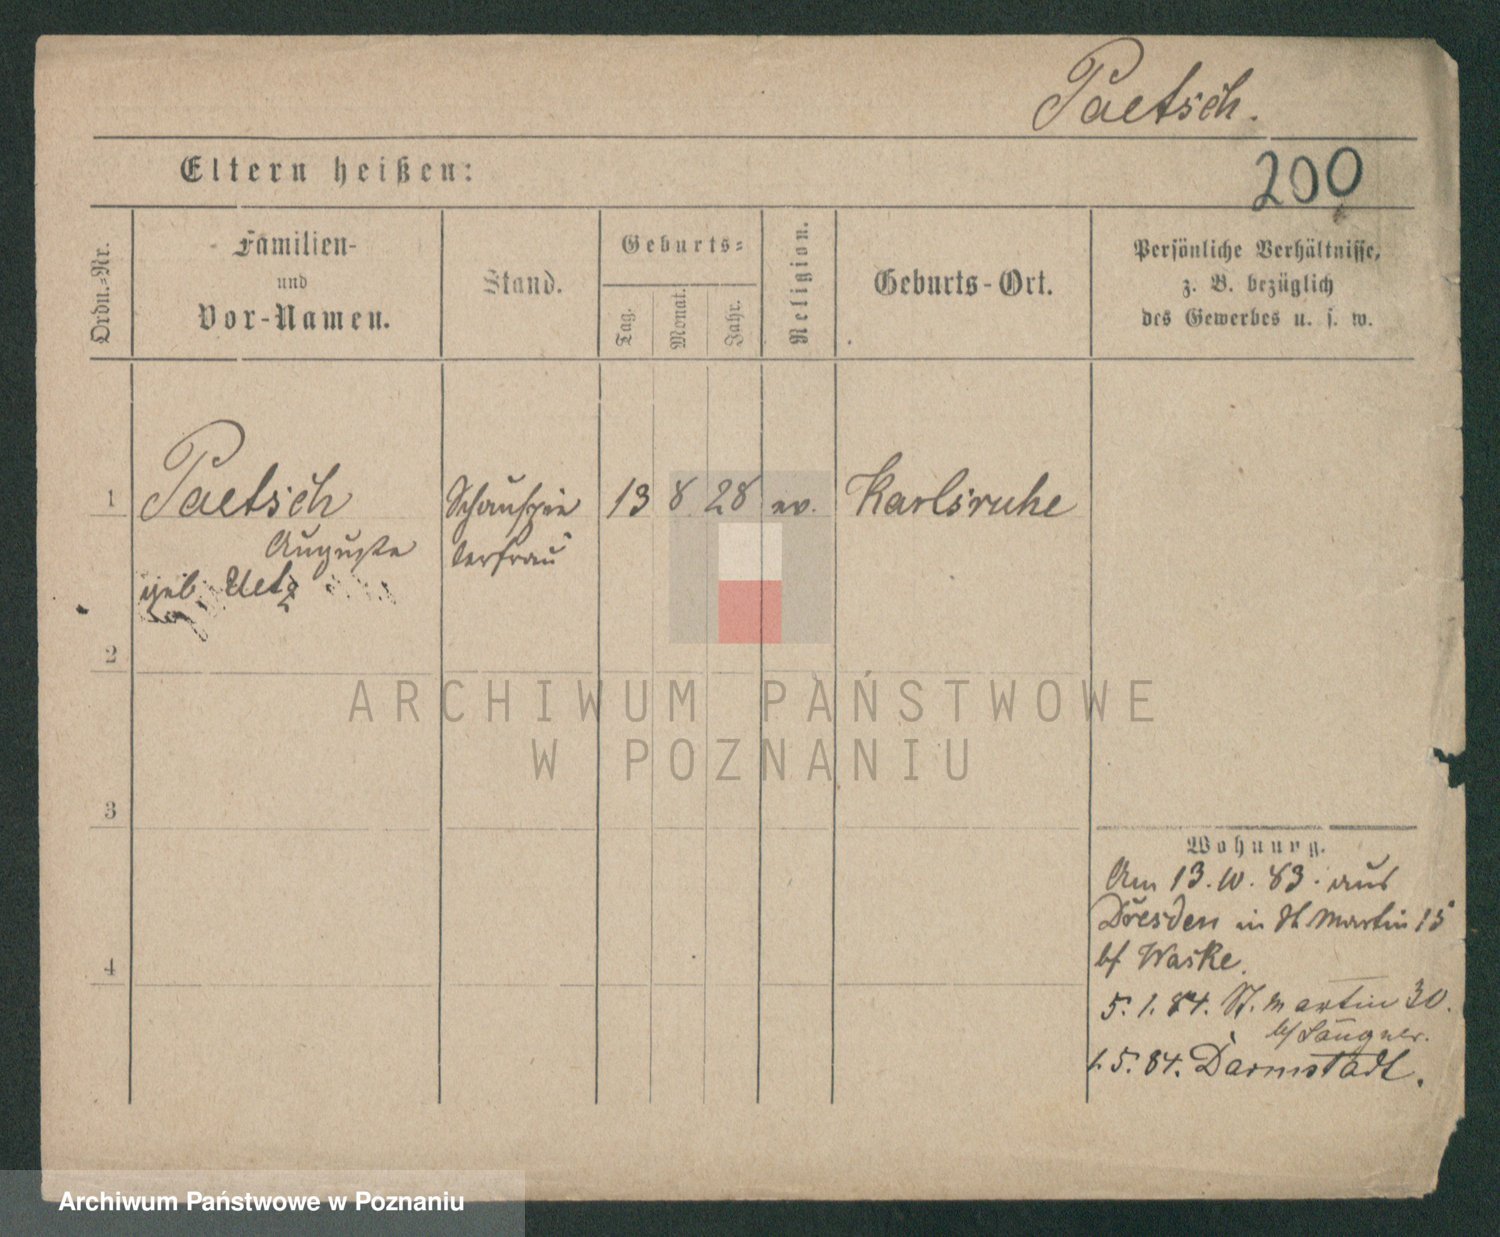 Paetsch.
Eltern heißen:
200
Ordn.-Nr.
Familien-
und
Vor-Namen.
Stand.
Geburts-
Tag.
Monat.
Jahr.
Religion.
Geburts-Ort.
Persönliche Verhältnisse,
z. B. bezüglich
des Gewerbes u. s. w.
1 Paetsch Schauspie 13 8 28 ev. Karlsruhe
Auguste lerfrau
geb. Uetz
2
3
4
Wohnung.
Am 13.10.83. aus
Dresden in St Martin 15
bf Waske.
5.1.84. St. Martin 30.
bf
1.5.84. Darmstadt.
ARCHIWUM PAŃSTWOWE
W POZNANIU
Archiwum Państwowe w Poznaniu